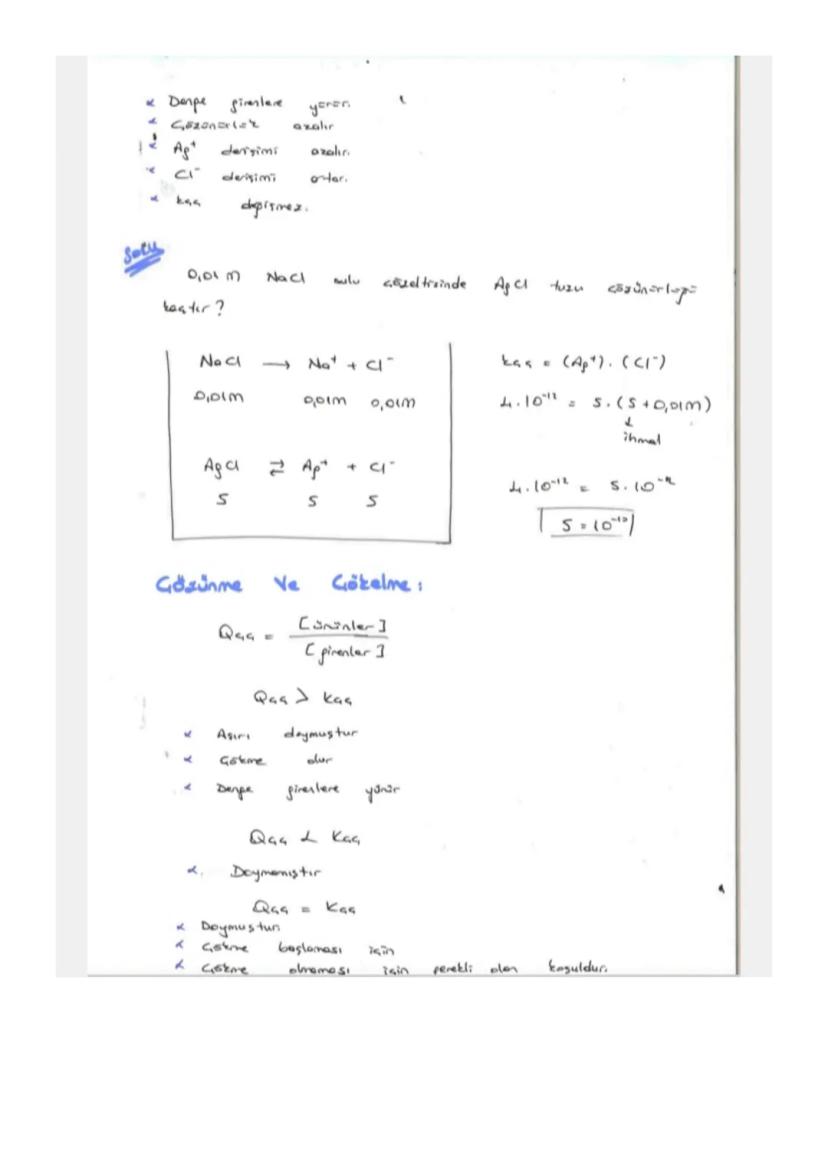 Denge girenlere yürür.
Çözünürlük azalır
Ag⁺ derişimi azalır.
Cl⁻ derişimi artar.
kçç değişmez.
Soru
0,01 M NaCl sulu çözeltisinde AgCl tuzu çözünürlüğü
kaçtır?
NaCl → Na⁺ + Cl⁻
0,01M 0,01M 0,01M
AgCl ⇄ Ag⁺ + Cl⁻
S S S
kçç = (Ag⁺). (Cl⁻)
4.10⁻¹² = S. (S + 0,01M)
ihmal
4.10⁻¹² = S.10⁻²
S = 10⁻¹⁰
Çözünme Ve Çökelme:
Qçç = [ürünler]
[girenler]
Qçç > kçç
Aşırı doymuştur
Çökme olur
Denge girenlere yürür
Qçç < Kçç
Doymamıştır
Qçç = Kçç
Doymuştur.
Çökme başlaması için
Çökme olmaması için gerekli olan koşuldur.